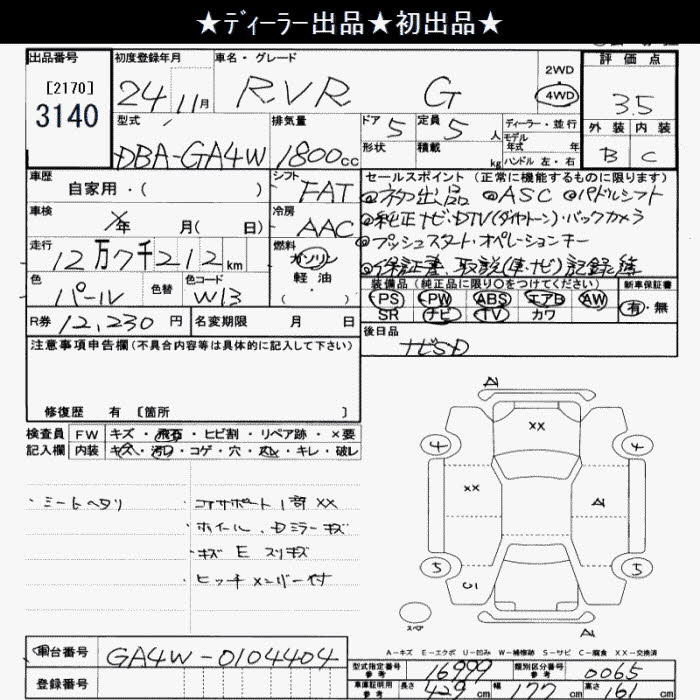 ★ディーラー出品★初出品★
出品番号
[2170]
3140
初度登録年月
24 11月
車名・グレード
RVR G
2WD
4WD
評価点
3.5
外装 内装
B C
型式
DBA-GA4W
排気量
1800cc
ドア 5
形状
定員 5人
積載 kg
ディーラー・並行
モデル年式 年
ハンドル 左・右
車歴
自家用・( )
シフト
FAT
車検
年 月( 日)
冷房
AAC
走行
12万7千212km
燃料
ガソリン
軽油
色
パール
色替
色コード
W13
R券 12,230円
名変期限 月 日
セールスポイント(正常に機能するものに限ります)
◎初出品 ◎ASC ◎パドルシフト
◎純正ナビ・DTV(ダイヤトーン)・バックカメラ
◎プッシュスタート・オペレーションキー
◎保証書、取説(車・ナビ)記録簿
装備品(純正品に限り○をつけてください)
PS PW ABS エアB AW
SR ナビ TV カワ
新車保証書
有・無
後日品
ナビSD
注意事項申告欄(不具合内容等は具体的に記入して下さい)
修復歴 有 [箇所 ]
検査員記入欄
FW キズ・飛石・ヒビ割・リペア跡・×要
内装 キズ・汚レ・コゲ・穴・スレ・キレ・破レ
・シートヘタリ
・コアサポート1部XX
・ホイール、Dミラーキズ
・キズ E スリキズ
・ヒッチメンバー付
XX
XX
4
4
5
5
スペア
A-キズ E-エクボ U-凹み W-補修跡 S-サビ C-腐食 XX-交換済
車台番号
GA4W-0104404
登録番号
型式指定番号
参考
16999
類別区分番号
参考
0065
車庫証明用
参考
長さ 429cm
幅 177cm
高さ 161cm